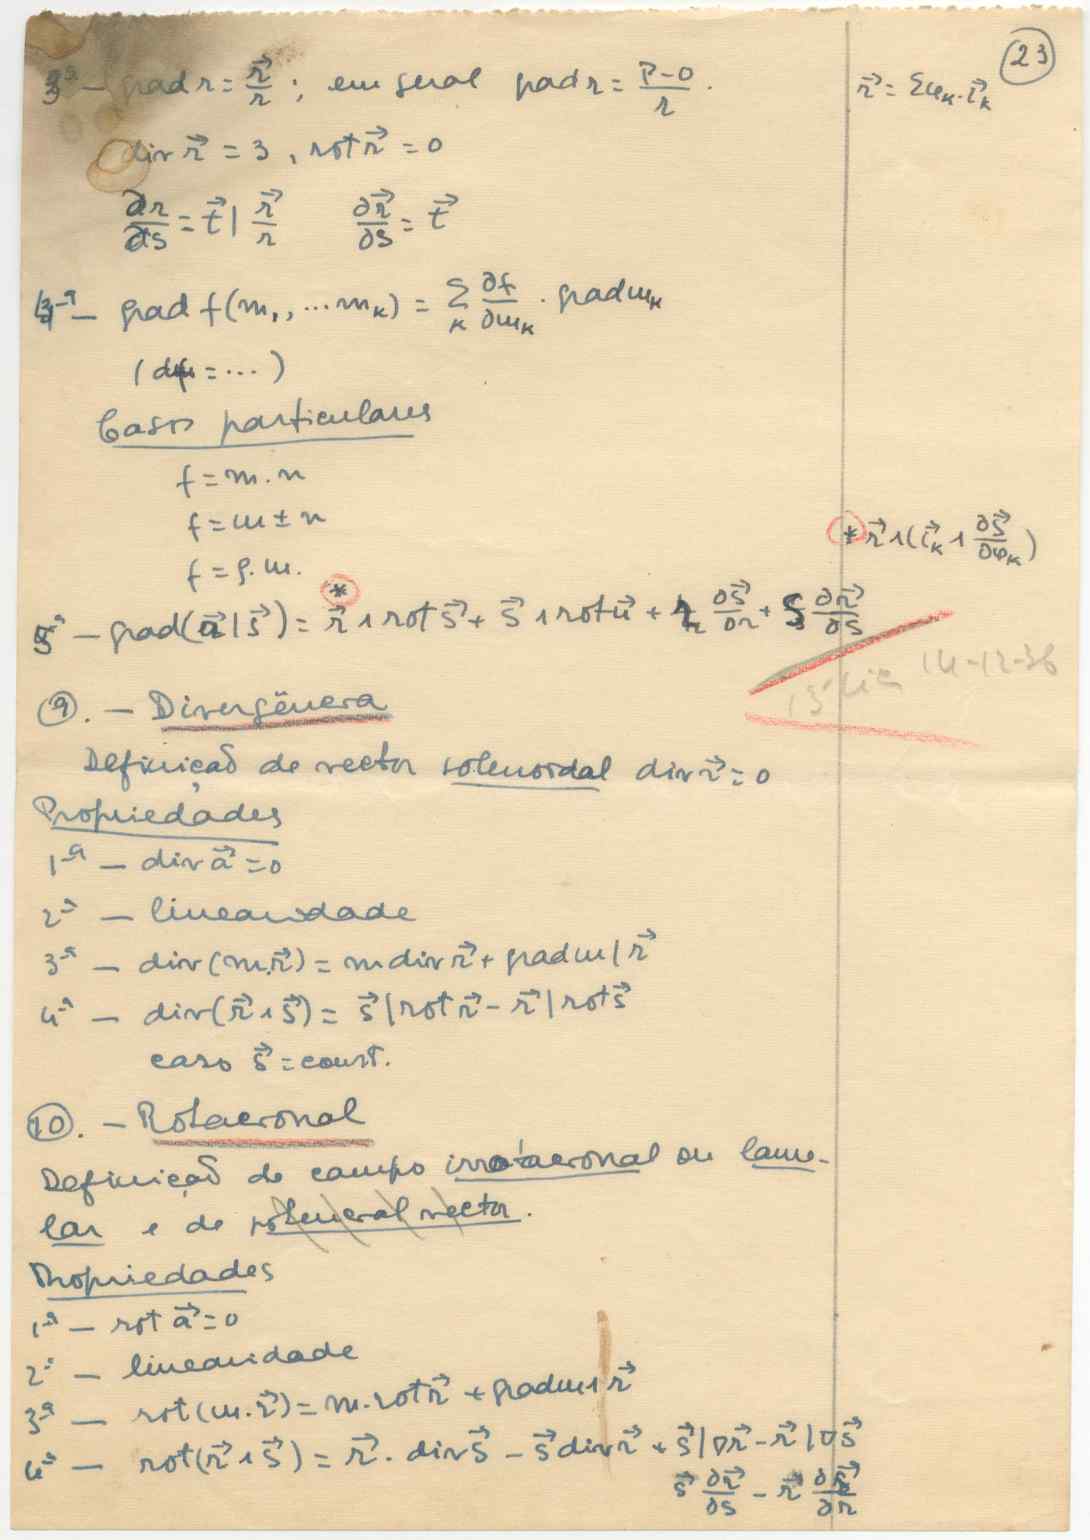 23
3ª – grad r = r⃗/r ; em geral grad r = P-O/r .
r⃗ = Σu_k . i⃗_k
div r⃗ = 3 , rot r⃗ = 0
∂r/∂s = t⃗ | r⃗/r ∂r⃗/∂s = t⃗
4ª – grad f(m₁, ... m_k) = Σ_k ∂f/∂m_k . grad m_k
(df = ... )
Casos particulares
f = m . n
f = m ± n
* r⃗ ∧ (i⃗_k ∧ ∂s⃗/∂φ_k)
f = ρ . m.
*
5ª – grad(r⃗ | s⃗) = r⃗ ∧ rot s⃗ + s⃗ ∧ rot r⃗ + r ∂s⃗/∂r + s ∂r⃗/∂s
14-12-36
9. – Divergência
Definição de vector solenoidal div r⃗ = 0
Propriedades
1ª – div a⃗ = 0
2ª – linearidade
3ª – div (m.r⃗) = m div r⃗ + grad m | r⃗
4ª – div(r⃗ ∧ s⃗) = s⃗ | rot r⃗ – r⃗ | rot s⃗
caso s⃗ = const.
10. – Rotacional
Definição de campo irrotacional ou lame-
lar e de vector.
Propriedades
1ª – rot a⃗ = 0
2ª – linearidade
3ª – rot (m . r⃗) = m . rot r⃗ + grad m ∧ r⃗
4ª – rot(r⃗ ∧ s⃗) = r⃗ . div s⃗ – s⃗ div r⃗ + s⃗ | ∇r⃗ – r⃗ | ∇s⃗
s⃗ ∂r⃗/∂s – r⃗ ∂s⃗/∂r